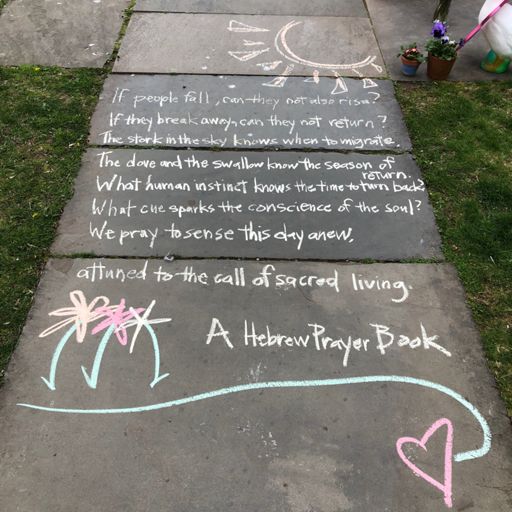 If people fall, can they not also rise?
If they break away, can they not return?
The stork in the sky knows when to migrate,
The dove and the swallow know the season of return.
What human instinct knows the time to turn back?
What cue sparks the conscience of the soul?
We pray to sense this day anew,
attuned to the call of sacred living.
A Hebrew Prayer Book